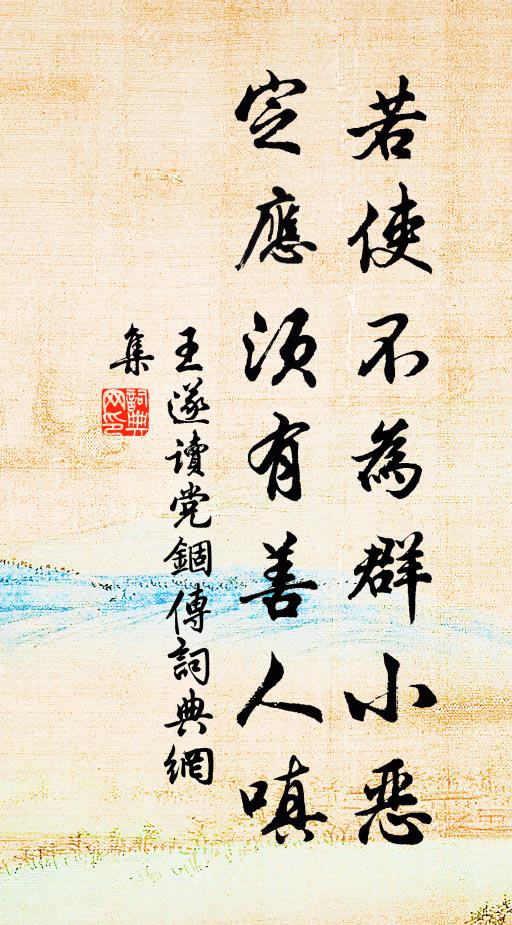 若使不為群小惡
定應須有善人嗔
王遂讀党錮傳詞典網
集
詞典
网印